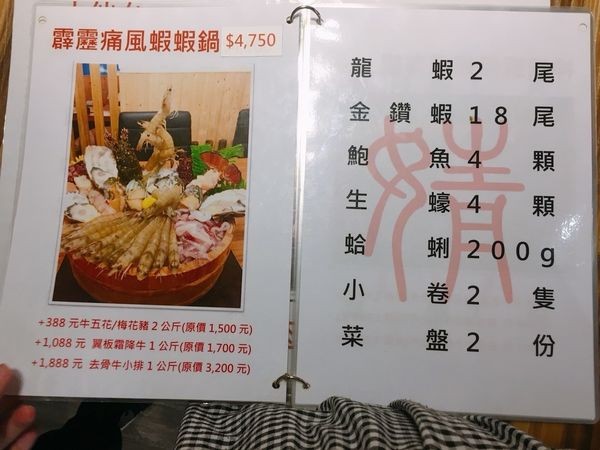 霹靂痛風蝦蝦鍋 $4,750
+388 元牛五花/梅花豬 2 公斤(原價 1,500 元)
+1,088 元 翼板霜降牛 1 公斤(原價 1,700 元)
+1,888 元 去骨牛小排 1 公斤(原價 3,200 元)
龍蝦 2 尾
金鑽蝦 18 尾
鮑魚 4 顆
生蠔 4 顆
蛤蜊 200g
小卷 2 隻
菜盤 2 份
婧